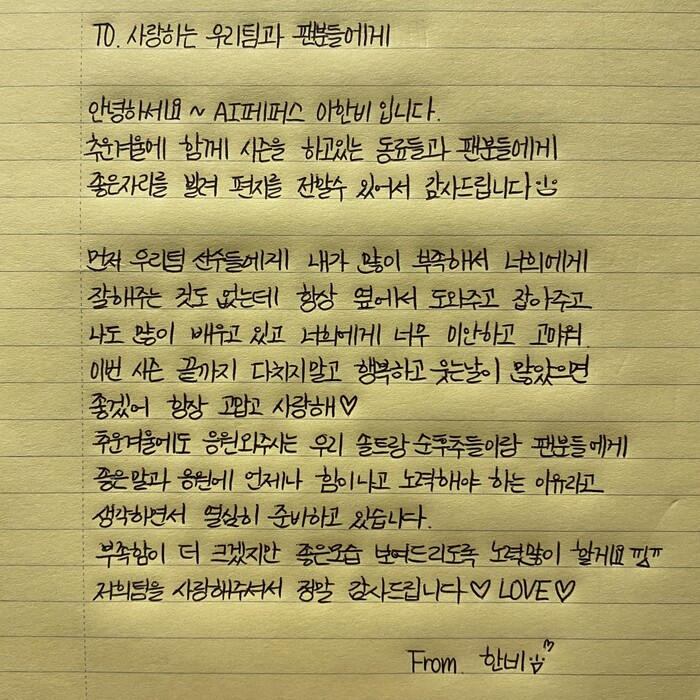 TO. 사랑하는 우리팀과 팬분들에게
안녕하세요 ~ AI페퍼스 이한비 입니다.
추운겨울에 함께 시즌을 하고있는 동료들과 팬분들에게
좋은자리를 빌려 편지를 전할수 있어서 감사드립니다
먼저 우리팀 선수들에게 내가 많이 부족해서 너희에게
잘해주는 것도 없는데 항상 옆에서 도와주고 잡아주고
나도 많이 배우고 있고 너희에게 너무 미안하고 고마워.
이번 시즌 끝까지 다치지말고 행복하고 웃는날이 많았으면
좋겠어 항상 고맙고 사랑해♡
추운겨울에도 응원와주시는 우리 솔트랑 순후추들이랑 팬분들에게
좋은말과 응원에 언제나 힘이나고 노력해야 하는 이유라고
생각하면서 열심히 준비하고 있습니다.
부족함이 더 크겠지만 좋은모습 보여드리도록 노력많이 할게요 ㅠㅠ
저희팀을 사랑해주셔서 정말 감사드립니다♡ LOVE♡
From. 한비